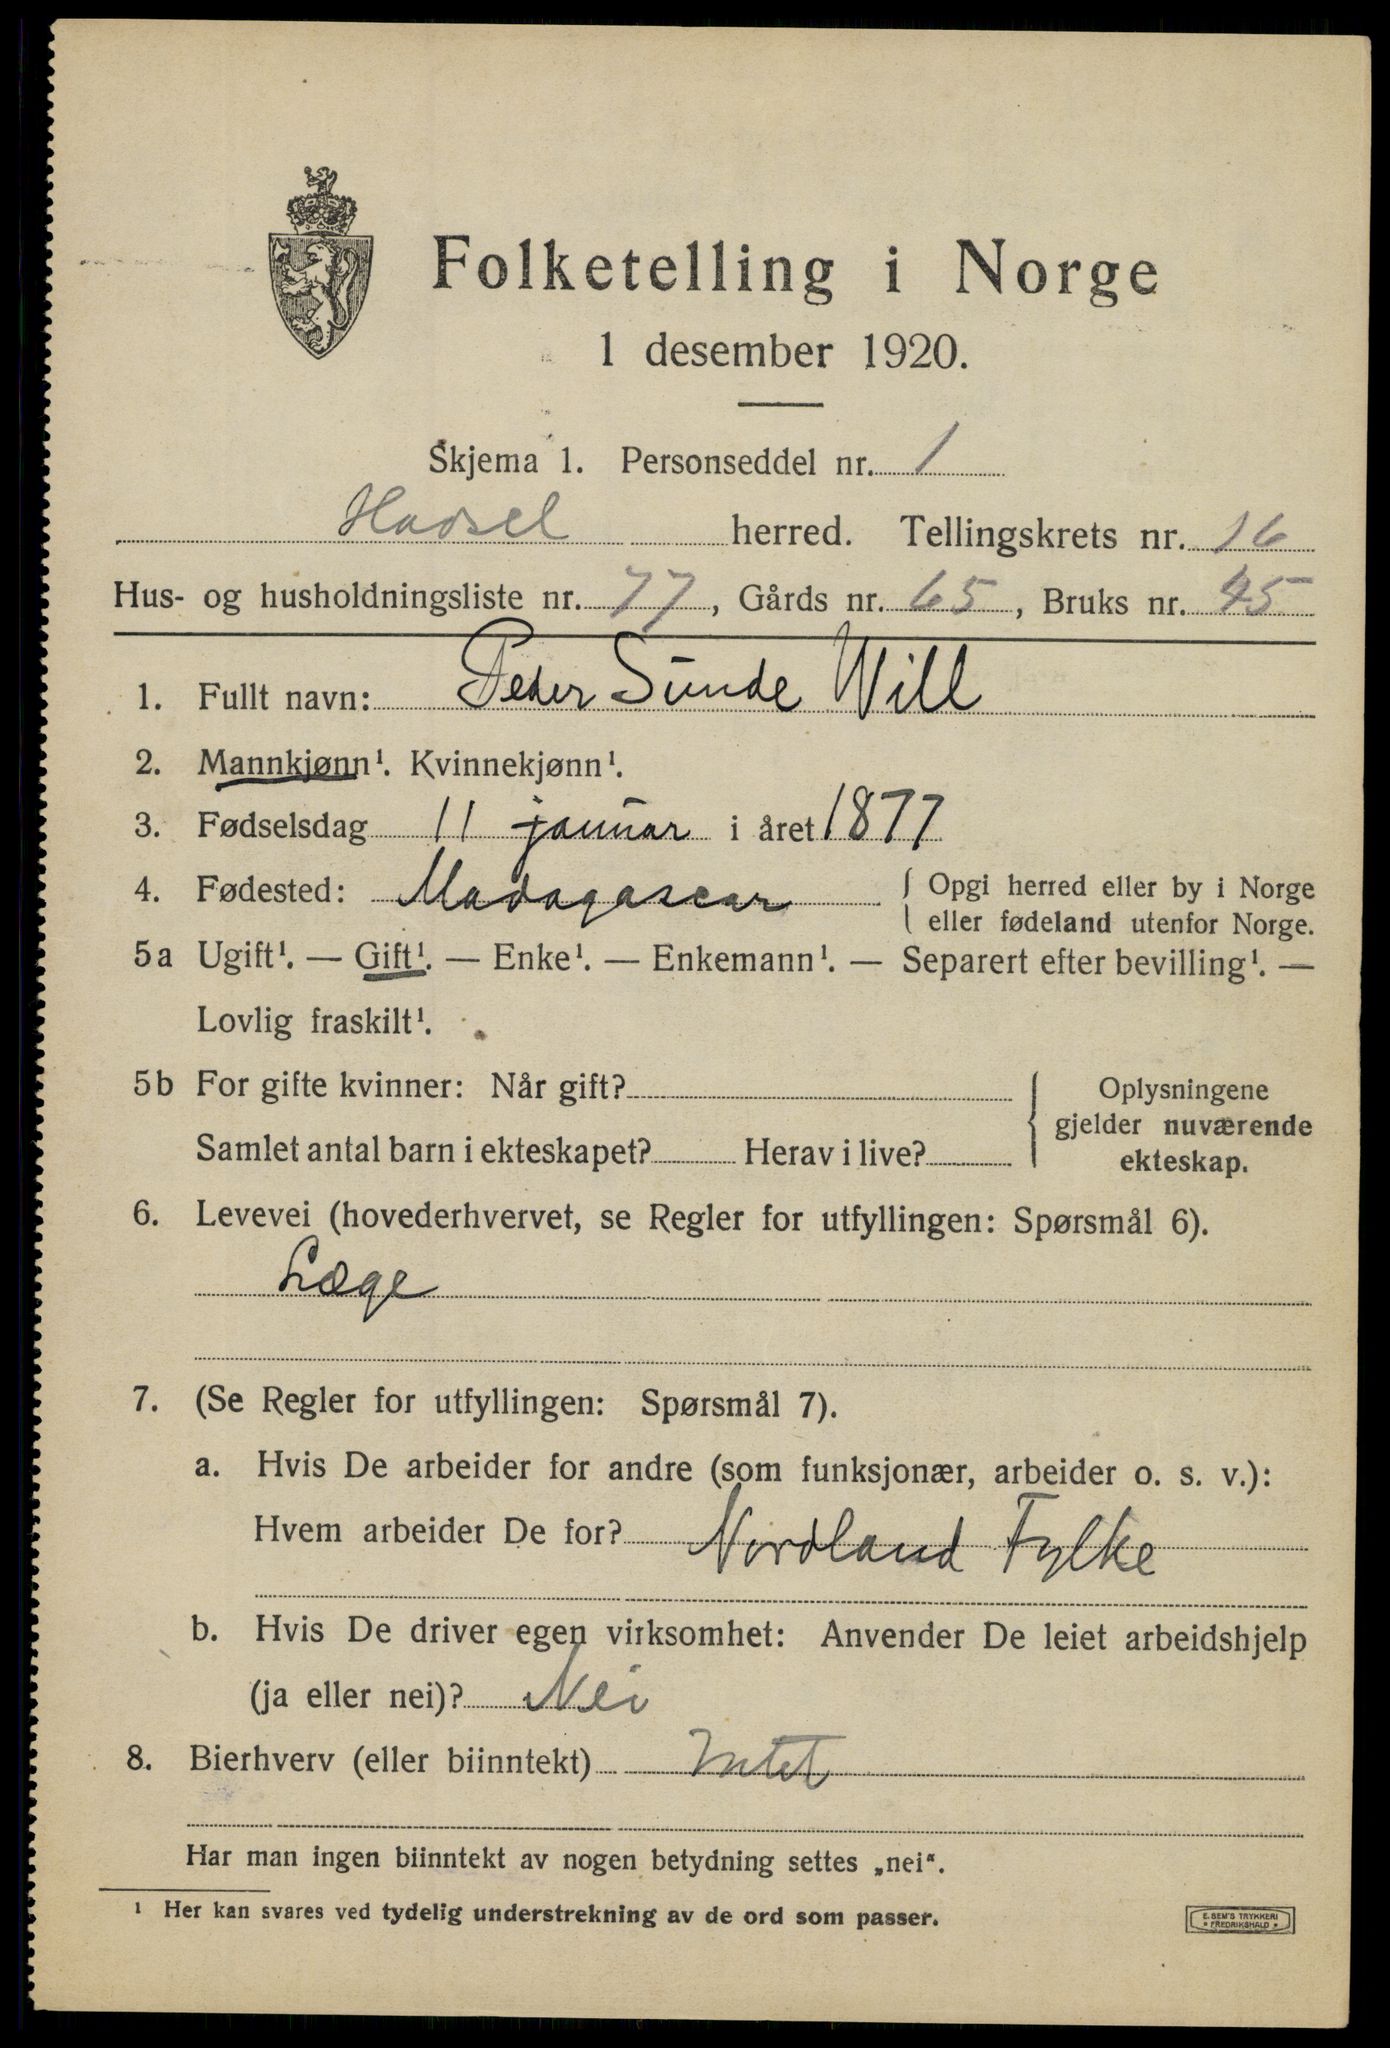 Folketelling i Norge
1 desember 1920.
Skjema 1. Personseddel nr. 1
Hadsel herred. Tellingskrets nr. 16
Hus- og husholdningsliste nr. 77, Gårds nr. 65, Bruks nr. 45
1. Fullt navn: Peder Sunde Will
2. Mannkjønn¹. Kvinnekjønn¹.
3. Fødselsdag 11 januar i året 1877
4. Fødested: Madagascar { Opgi herred eller by i Norge
eller fødeland utenfor Norge.
5a Ugift¹. — Gift¹. — Enke¹. — Enkemann¹. — Separert efter bevilling¹. —
Lovlig fraskilt¹.
5b For gifte kvinner: Når gift? { Oplysningene
gjelder nuværende
Samlet antal barn i ekteskapet? Herav i live? ekteskap.
6. Levevei (hovederhvervet, se Regler for utfyllingen: Spørsmål 6).
Læge
7. (Se Regler for utfyllingen: Spørsmål 7).
a. Hvis De arbeider for andre (som funksjonær, arbeider o. s. v.):
Hvem arbeider De for? Nordland Fylke
b. Hvis De driver egen virksomhet: Anvender De leiet arbeidshjelp
(ja eller nei)? Nei
8. Bierhverv (eller biinntekt) Intet
Har man ingen biinntekt av nogen betydning settes „nei“.
¹ Her kan svares ved tydelig understrekning av de ord som passer.
E. SEM'S TRYKKERI
* FREDRIKSHALD *